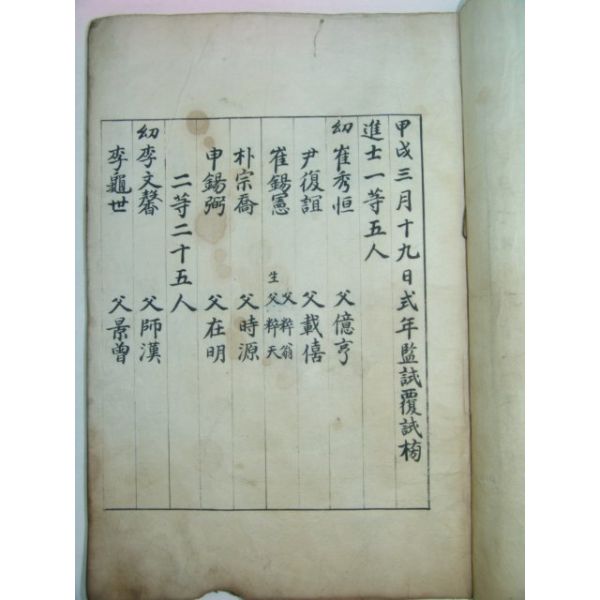 甲戌三月十九日式年監試覆試榜
進士一等五人
幼崔秀恒 父億亨
尹復誼 父載僖
崔錫憲 父粹翁 生父粹天
朴宗喬 父時源
申錫弼 父在明
二等二十五人
幼李文馨 父師漢
李龜世 父景曾